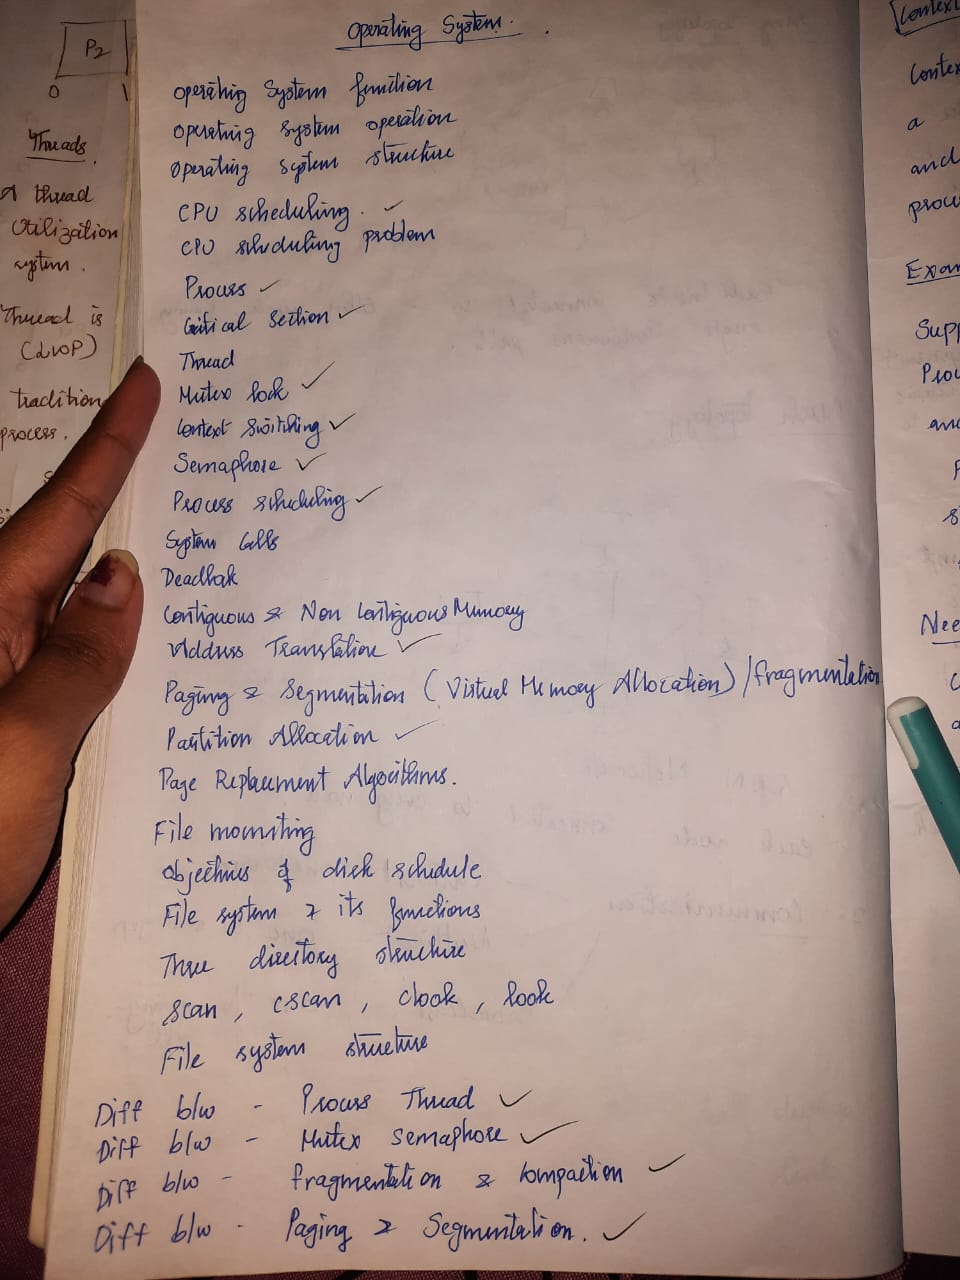 Operating System.
Operating System function
Operating System operation
Operating System structure
CPU scheduling. ✓
CPU scheduling problem
Process ✓
Critical Section ✓
Thread
Mutex lock ✓
Context Switching ✓
Semaphore ✓
Process scheduling ✓
System Calls
Deadlock
Contiguous & Non Contiguous Memory
Address Translation ✓
Paging & Segmentation (Virtual Memory Allocation) / fragmentation
Partition Allocation ✓
Page Replacement Algorithms.
File mounting
Objectives of disk schedule
File system & its functions
Three directory structure
Scan, cscan, clook, look
File system structure
Diff b/w - Process Thread ✓
Diff b/w - Mutex Semaphore ✓
Diff b/w - fragmentation & Compaction ✓
Diff b/w - Paging & Segmentation. ✓
P2
0 1
Threads.
A thread
utilization
system.
Thread is
(LWP)
tradition
process.
Context
Conte
a
and
proce
Exam
Supp
Proc
and
Nee